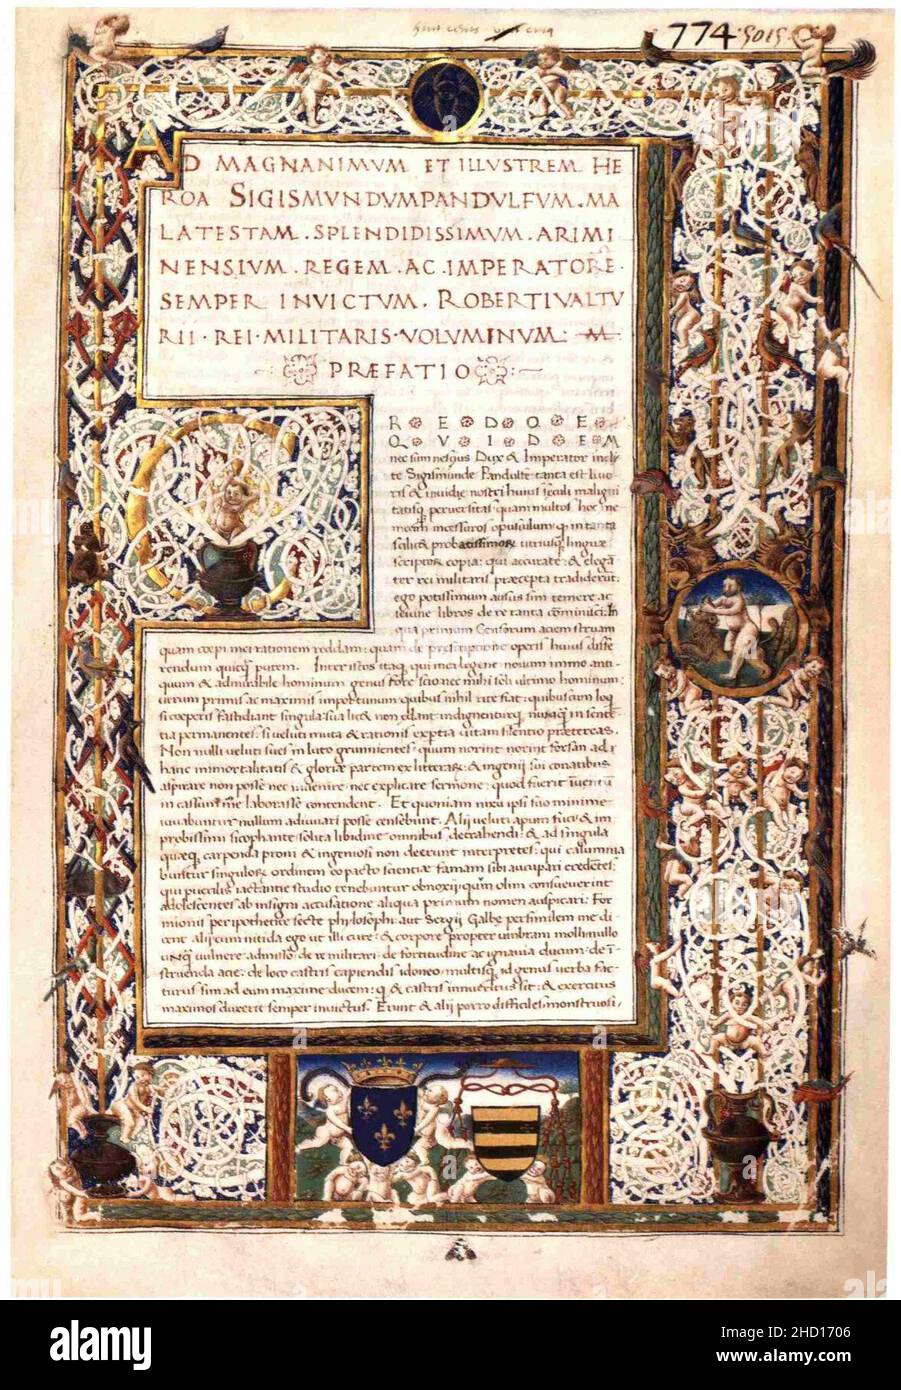 774 · 5015
AD MAGNANIMVM ET ILLVSTREM HE
ROA SIGISMVNDVM PANDVLFVM . MA
LATESTAM . SPLENDIDISSIMVM . ARIMI
NENSIVM . REGEM . AC . IMPERATORE .
SEMPER INVICTVM . ROBERTI VALTV
RII · REI · MILITARIS · VOLVMINVM · M
PRÆFATIO
CREDO E
QVIDEM
nec sum nescius Dux & Imperator incly
te Sigismunde Pandulfe tanta est livo
ris & invidiæ nostri huius seculi maligni
tatisq perversitas quam multos hoc ne
opusculum q in tanta
utriusq linguæ
scriptorum copia: qui accurate & elegā
ter rei militaris præcepta tradiderūt:
ego potissimum ausus sim temere ac
libros de re tanta cōminisci: In
qua primum Censorum aciem struam
quam cœpi mei rationem reddam: quam de præscriptione operis huius diffe
rendum quicq putem. Inter istos itaq qui mei legent novum immo anti-
quum & admirabile hominum genus fore scio nec mihi soli ultimo hominum:
verum primis ac maximis importunum quibus nihil rite fiat: quibuscum loq
si cœperis fastidiant singula: sin
tia permanentes: si veluti muta & rationis expertia vitam silentio prætereas.
Non nulli veluti sues in luto grunnientes: quum norint norint forsan ad
hanc immortalitatis & gloriæ partem ex litterarū & ingenii sui conatibus
aspirare non posse nec invenire nec explicare sermone: quod fuerit
in cassum me laborasse contendent. Et quoniam nixu ipsi suo minime
iuvabuntur nullum adiuvari posse censebunt. Alii veluti apum fuci & im
probissimi sicophantæ solita libidine omnibus detrahendi: & ad singula
quæq carpenda proni & ingeniosi non deerunt interpretes: qui calumnia
singulorum ordinem eo pacto scientiæ famam sibi aucupari credentes:
qui puerilis iactantiæ studio tenebuntur obnoxii: quum olim consueverint
adolescentes ab insigni accusatione aliqua primum nomen auspicari: For
mionis peripotheticæ sectæ philosophi: aut Sergii Galbæ persimilem me di
cent alii: cum nitida ego ut ille cute: & corpore propter umbram molli nullo
unq vulnere admisso: de re militari: de fortitudine ac ignavia ducum: de ī-
struenda acie: de loco castris capiendis idoneo multisq id genus verba fac-
turus sim ad eum maxime ducem: q & castris invictus sit: & exercitus
maximos duxerit semper invictus. Erunt & alii porro difficiles: monstruosi,
alamy
Image ID: 2HD1706
www.alamy.com